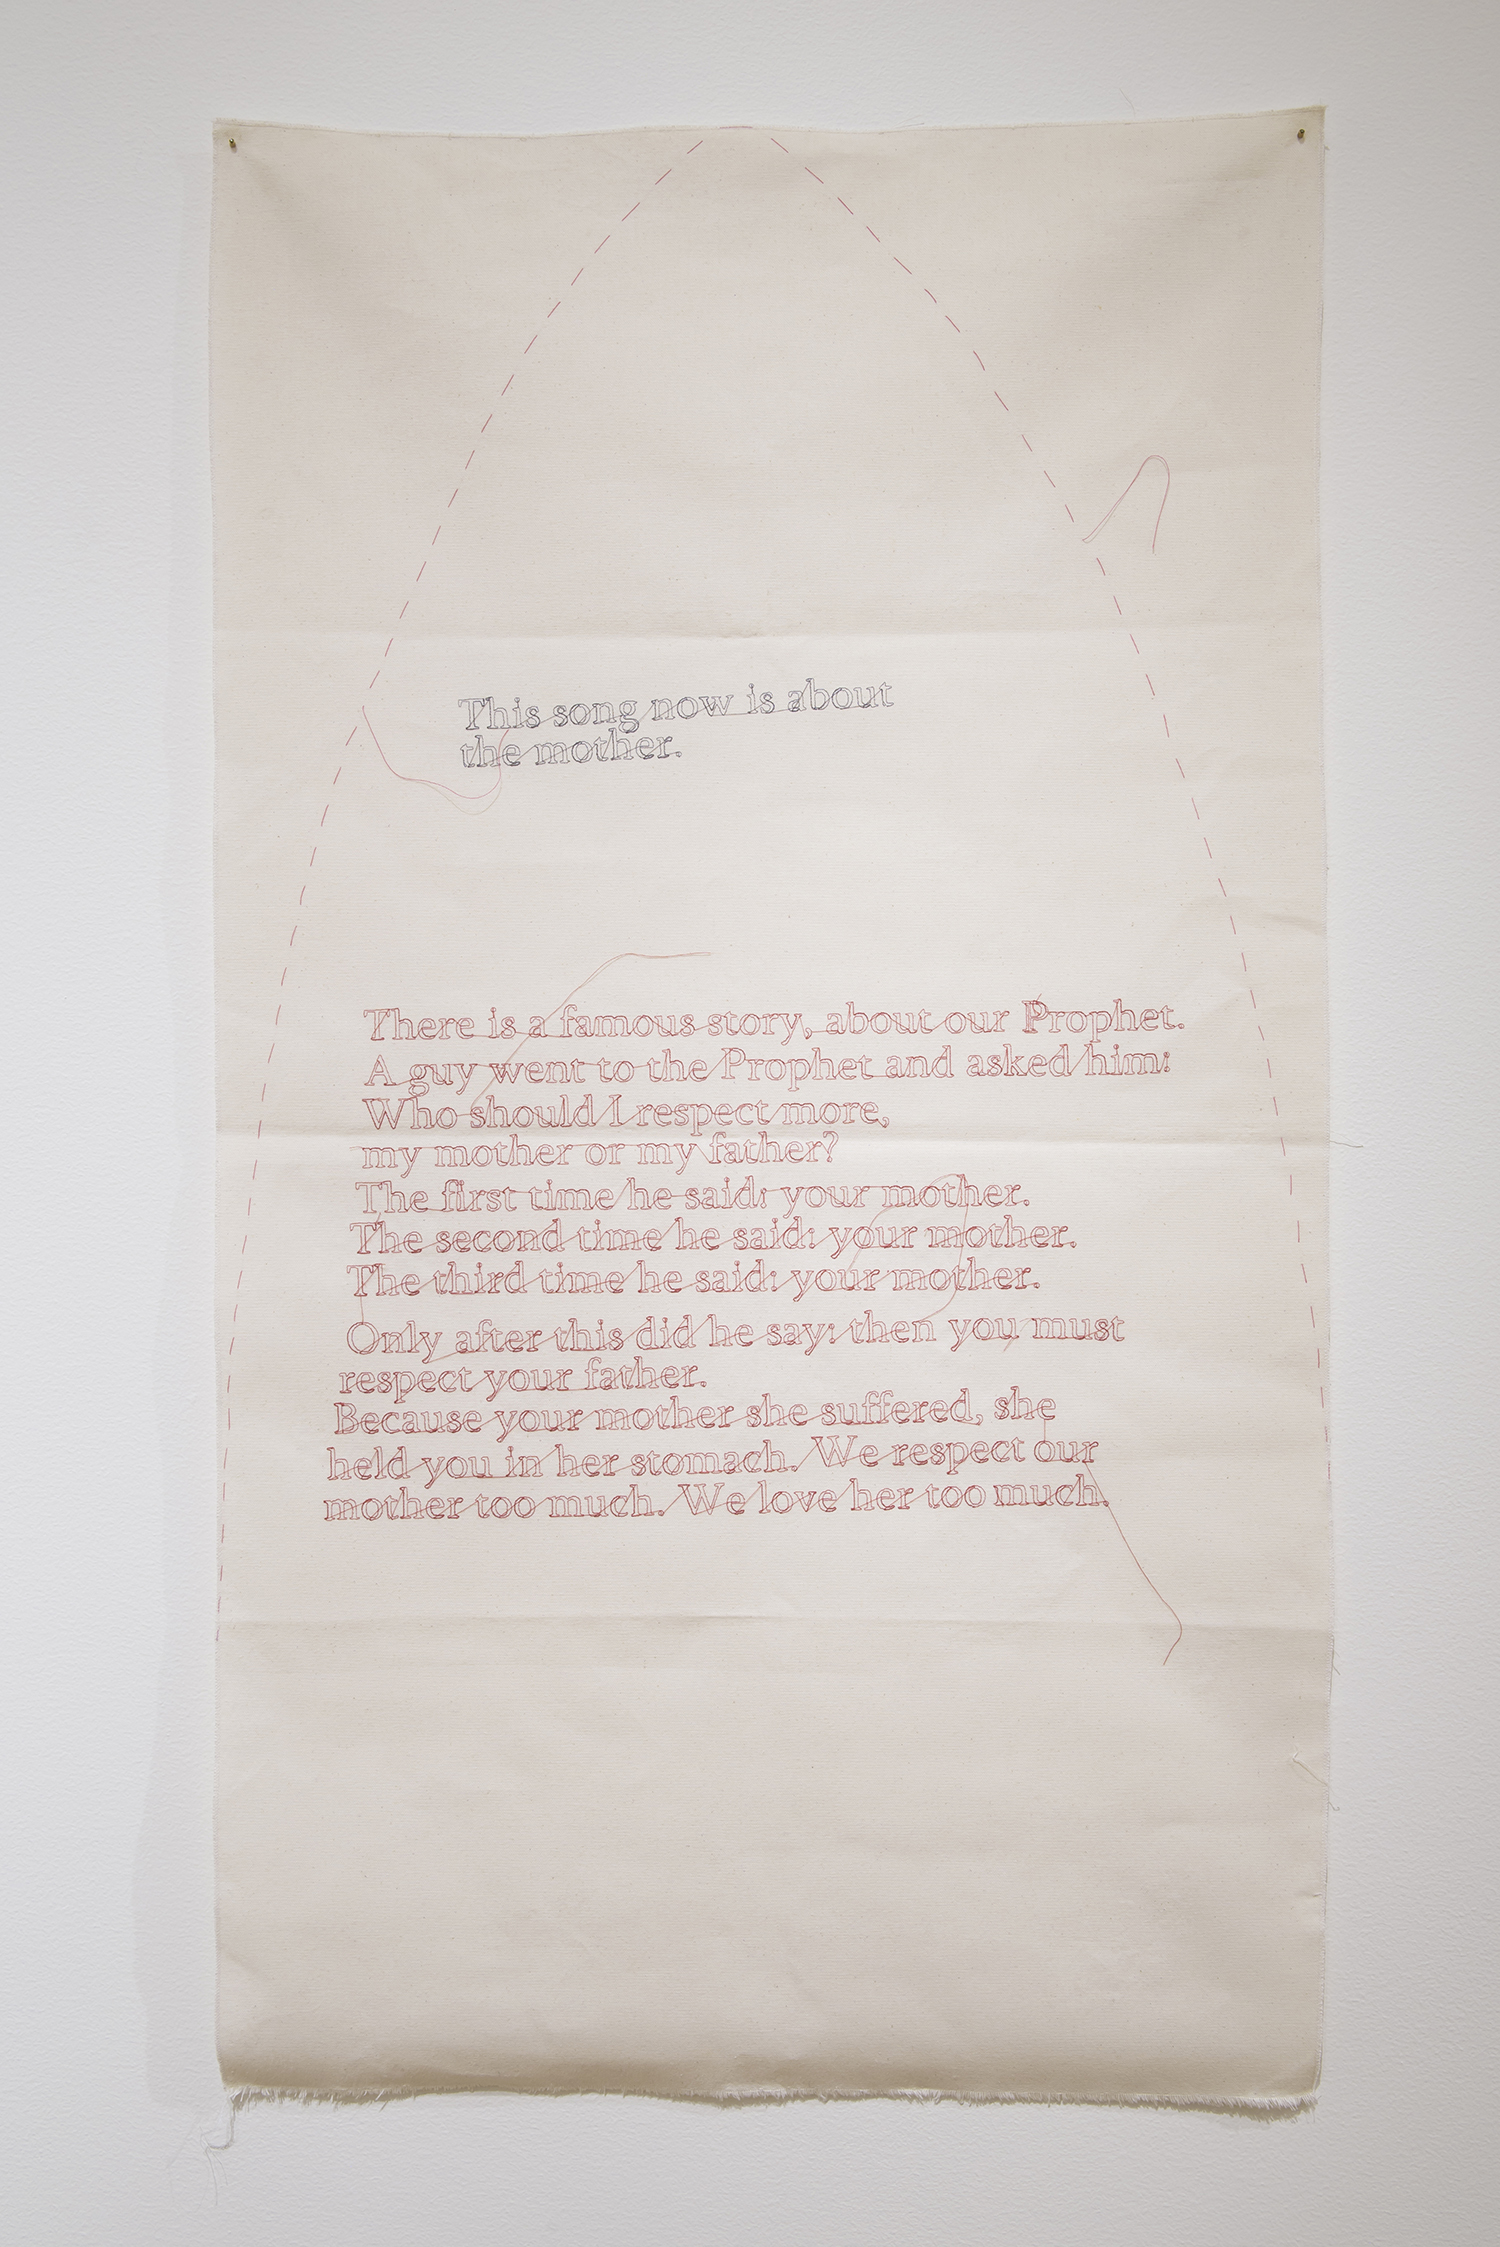 This song now is about
the mother.
There is a famous story, about our Prophet.
A guy went to the Prophet and asked him:
Who should I respect more,
my mother or my father?
The first time he said: your mother.
The second time he said: your mother.
The third time he said: your mother.
Only after this did he say: then you must
respect your father.
Because your mother she suffered, she
held you in her stomach. We respect our
mother too much. We love her too much.